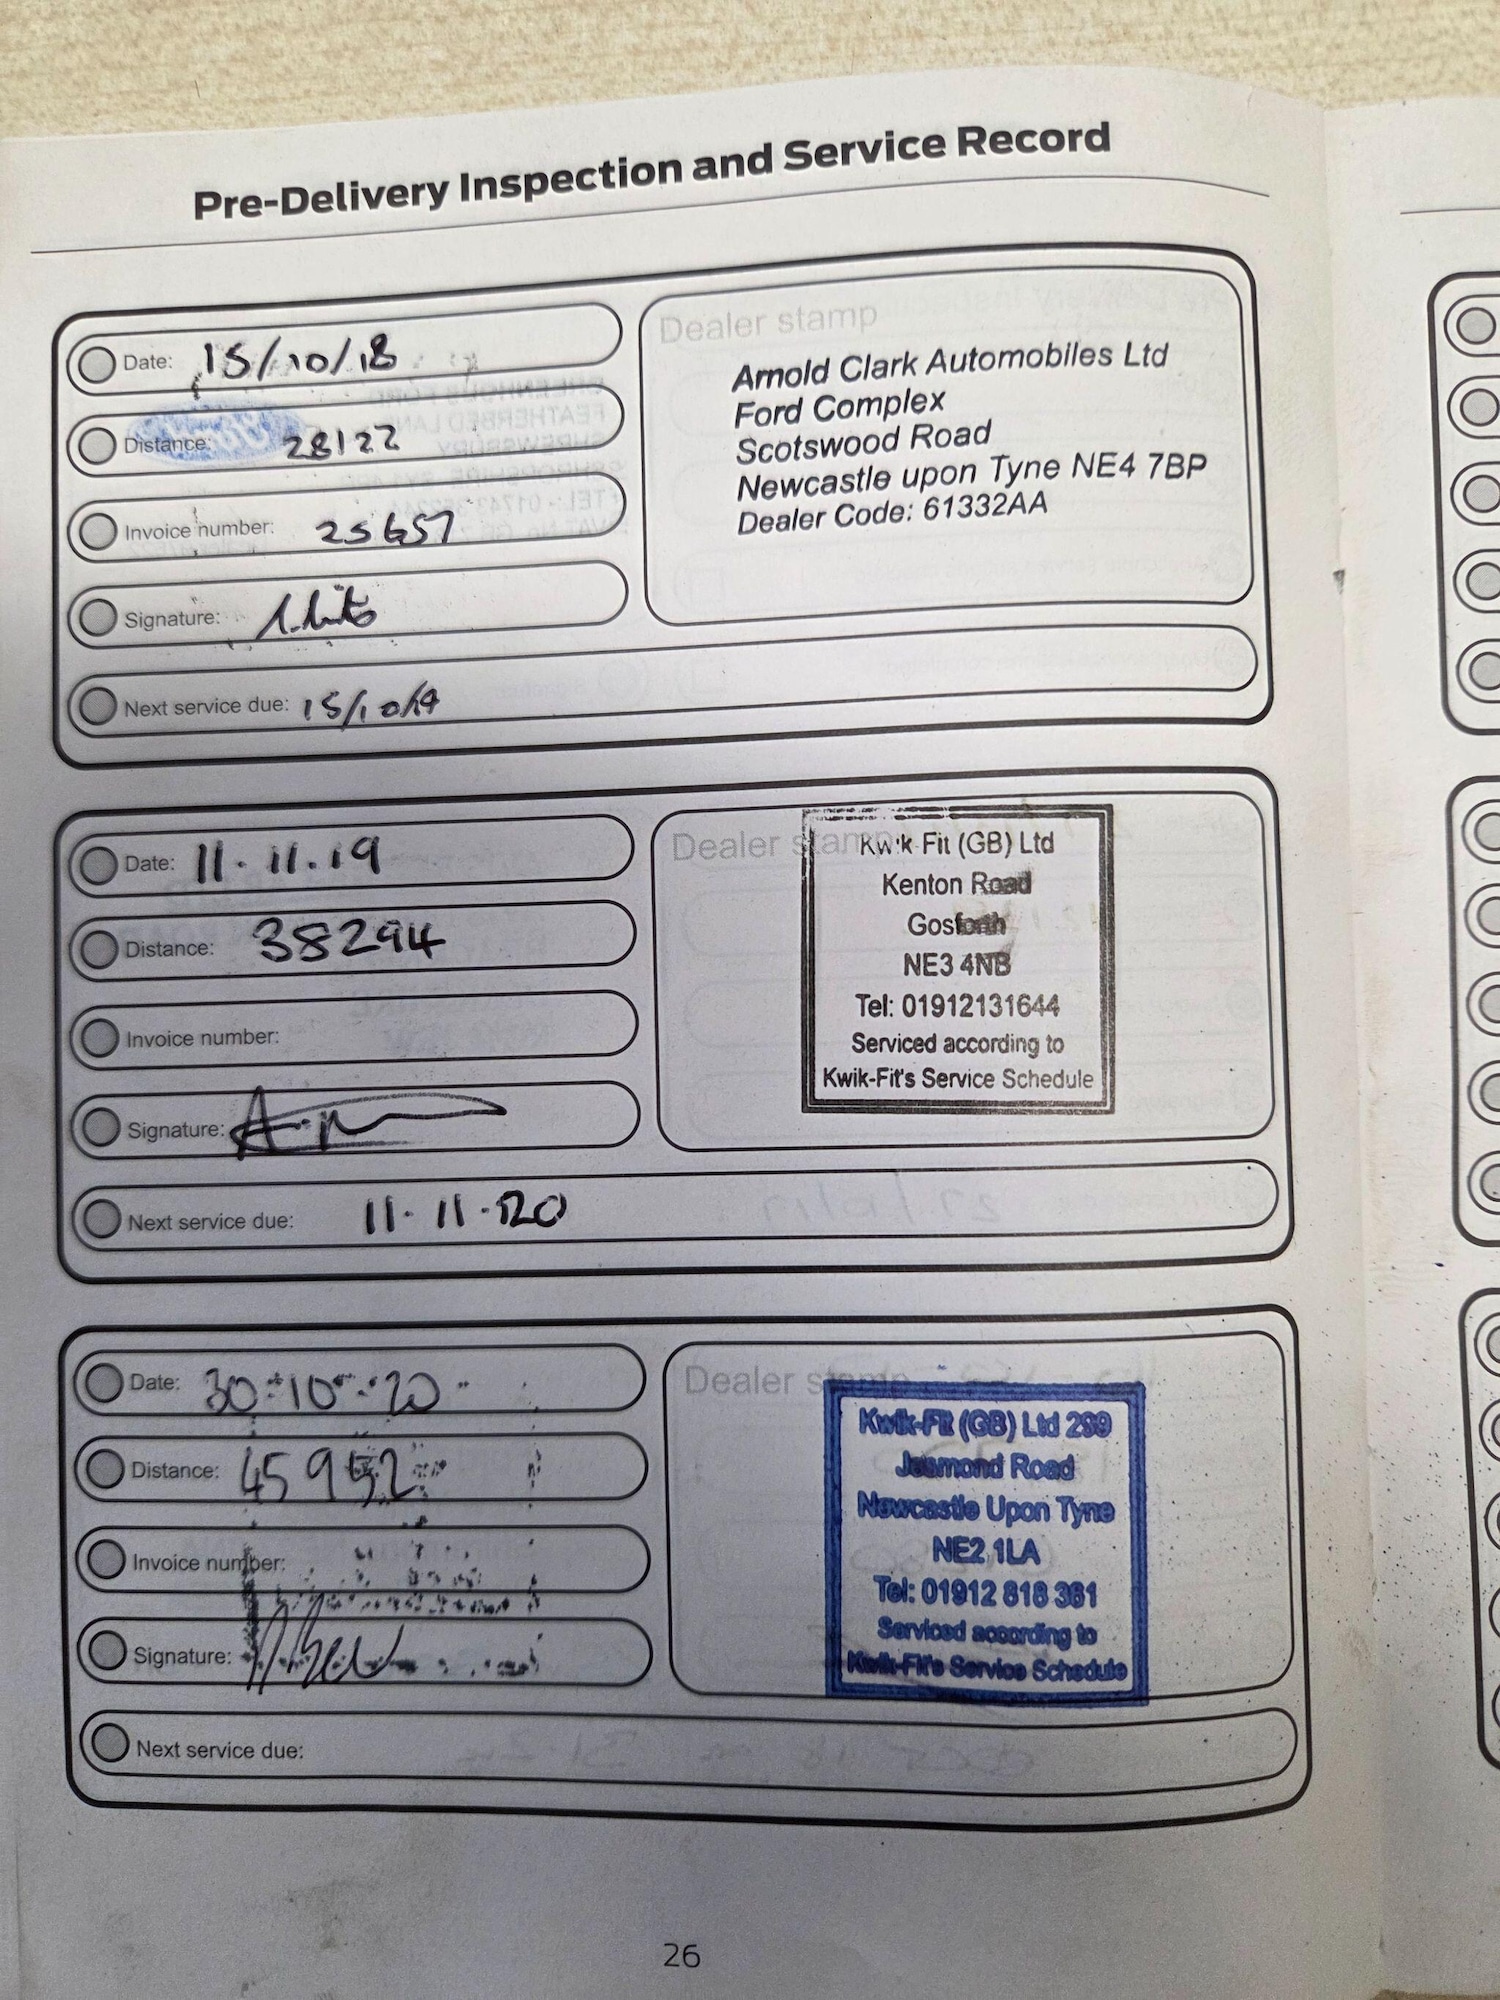 Pre-Delivery Inspection and Service Record
Date: 15/10/18
Distance: 28122
Invoice number: 25657
Signature:
Next service due: 15/10/19
Dealer stamp
Arnold Clark Automobiles Ltd
Ford Complex
Scotswood Road
Newcastle upon Tyne NE4 7BP
Dealer Code: 61332AA
Date: 11.11.19
Distance: 38294
Invoice number:
Signature:
Next service due: 11.11.20
Dealer stamp
Kwik Fit (GB) Ltd
Kenton Road
Gosforth
NE3 4NB
Tel: 01912131644
Serviced according to
Kwik-Fit's Service Schedule
Date: 30.10.20
Distance: 45952
Invoice number:
Signature:
Next service due:
Dealer stamp
Kwik-Fit (GB) Ltd 299
Jesmond Road
Newcastle Upon Tyne
NE2 1LA
Tel: 01912 818 361
Serviced according to
Kwik-Fit's Service Schedule
26